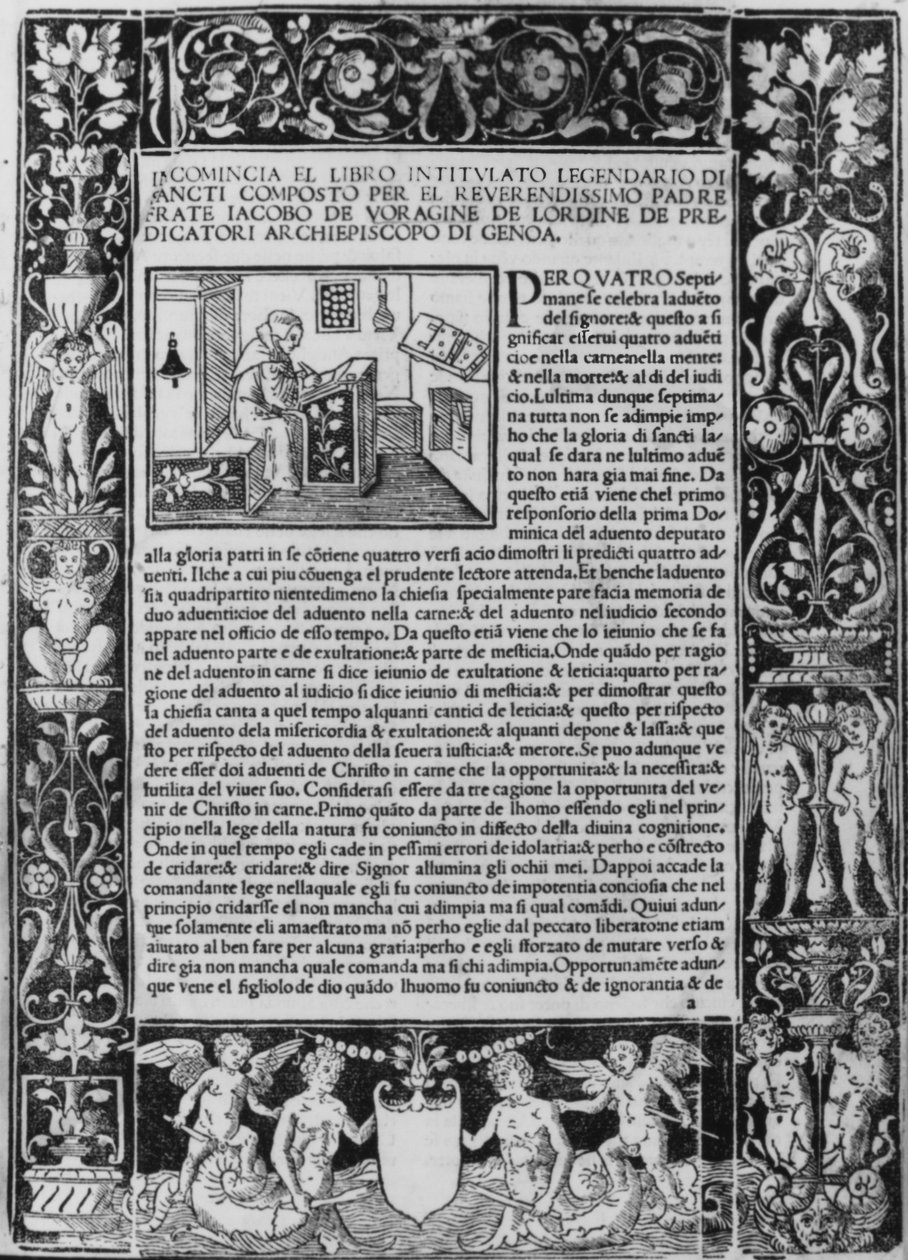 INCOMINCIA EL LIBRO INTITVLATO LEGENDARIO DI
SANCTI COMPOSTO PER EL REVERENDISSIMO PADRE
FRATE IACOBO DE VORAGINE DE LORDINE DE PRE-
DICATORI ARCHIEPISCOPO DI GENOA.
PERQVATRO Septi-
mane se celebra laduẽto
del signore:& questo a si
gnificar esserui quatro aduẽti
cioe nella carne:nella mente:
& nella morte:& al di del iudi
cio.Lultima dunque septima-
na tutta non se adimpie imp-
ho che la gloria di sancti la-
qual se dara ne lultimo aduẽ
to non hara gia mai fine. Da
questo etiã viene chel primo
responsorio della prima Do-
minica del aduento deputato
alla gloria patri in se cõtiene quattro versi acio dimostri li predicti quattro ad-
uenti. Ilche a cui piu cõuenga el prudente lectore attenda.Et benche laduento
sia quadripartito nientedimeno la chiesia specialmente pare facia memoria de
duo aduenti:cioe del aduento nella carne:& del aduento nel iudicio secondo
appare nel officio de esso tempo. Da questo etiã viene che lo ieiunio che se fa
nel aduento parte e de exultatione:& parte de mesticia.Onde quãdo per ragio
ne del aduento in carne si dice ieiunio de exultatione & leticia:quarto per ra-
gione del aduento al iudicio si dice ieiunio di mesticia:& per dimostrar questo
la chiesia canta a quel tempo alquanti cantici de leticia:& questo per rispecto
del aduento dela misericordia & exultatione:& alquanti depone & lassa:& que
sto per rispecto del aduento della seuera iusticia:& merore.Se puo adunque ve
dere esser doi aduenti de Christo in carne che la opportunita:& la necessita:&
lutilita del viuer suo. Considerasi essere da tre cagione la opportunita del ve-
nir de Christo in carne.Primo quãto da parte de lhomo essendo egli nel prin-
cipio nella lege della natura fu coniuncto in diffecto della diuina cognitione.
Onde in quel tempo egli cade in pessimi errori de idolatria:& perho e cõstrecto
de cridare:& cridare:& dire Signor allumina gli ochii mei. Dappoi accade la
comandante lege nellaquale egli fu coniuncto de impotentia conciosia che nel
principio cridarsse el non mancha cui adimpia ma si qual comãdi. Quiui adun-
que solamente eli amaestrato ma nõ perho eglie dal peccato liberato:ne etiam
aiutato al ben fare per alcuna gratia:perho e egli sforzato de mutare verso &
dire gia non mancha quale comanda ma si chi adimpia.Opportunamẽte adun-
que vene el figliolo de dio quãdo lhuomo fu coniuncto & de ignorantia & de
a